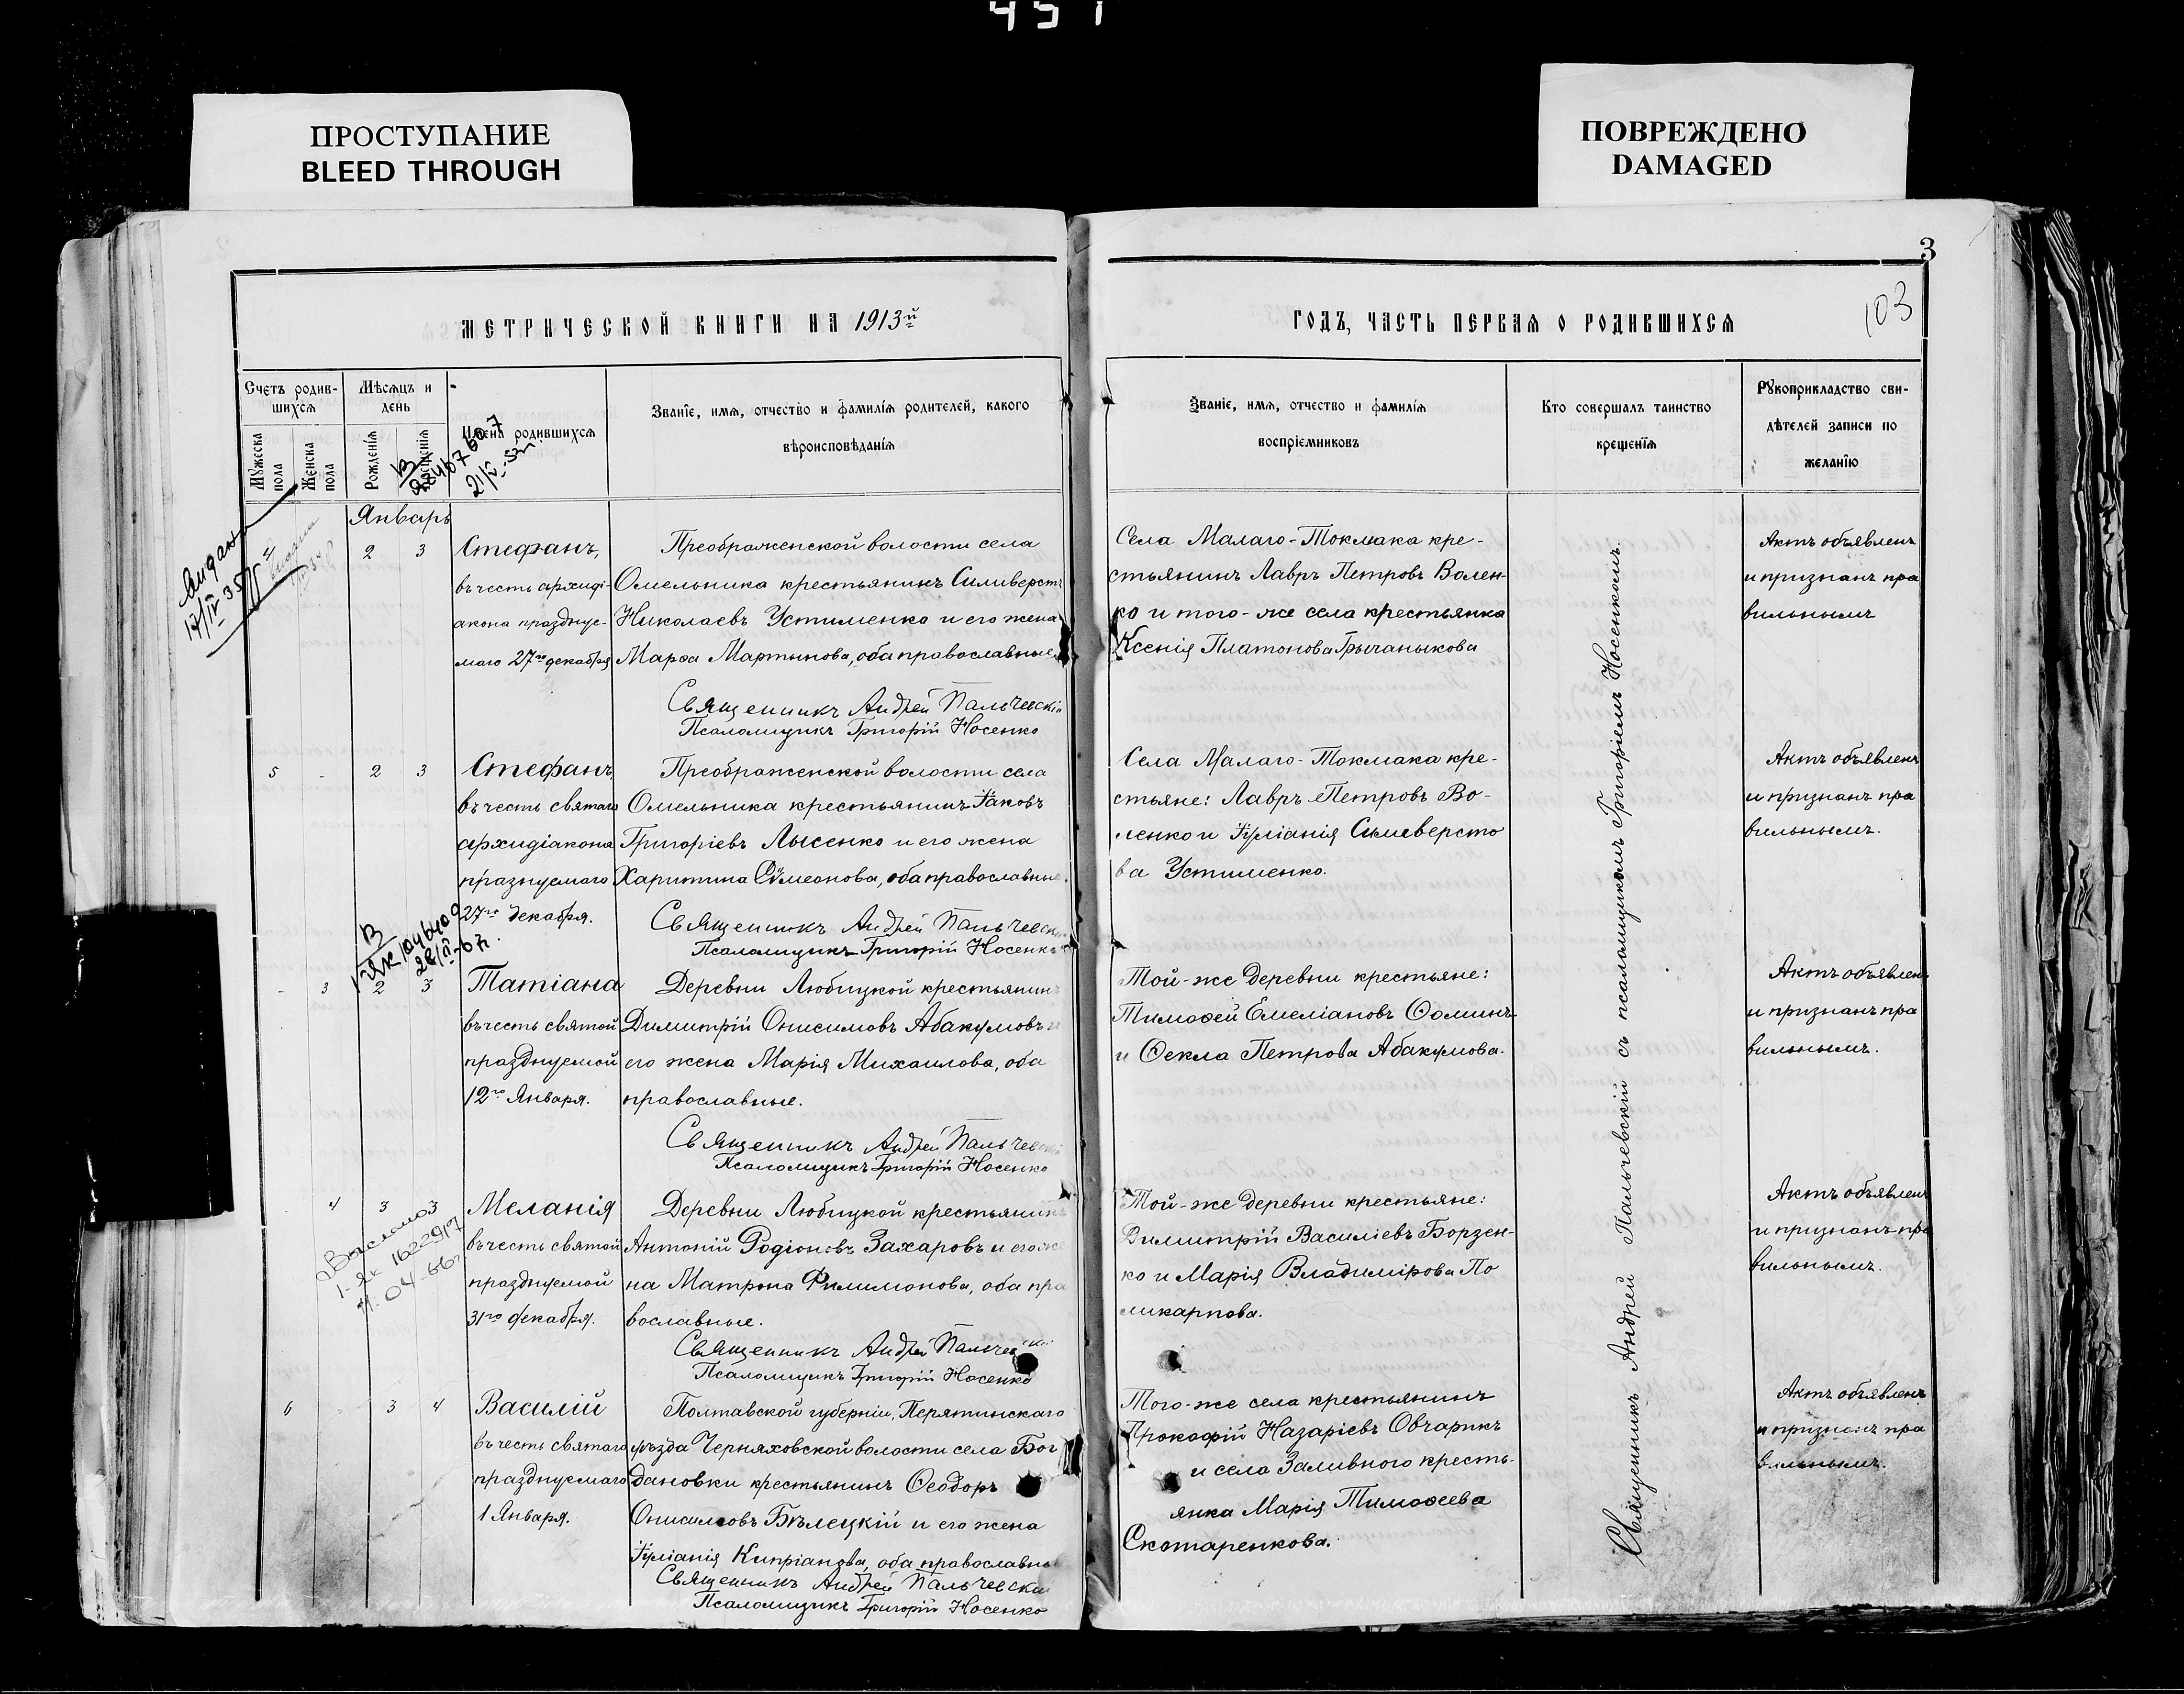 451
ПРОСТУПАНИЕ
BLEED THROUGH
ПОВРЕЖДЕНО
DAMAGED
3
103
МЕТРИЧЕСКОЙ КНИГИ НА 1913й
ГОДЪ, ЧАСТЬ ПЕРВАЯ О РОДИВШИХСЯ
Счетъ родив-
шихся
Мужеска пола
Женска пола
Мѣсяцъ и
день
Рожденія
Крещенія
Имена родившихся
Званіе, имя, отчество и фамилія родителей, какого
вѣроисповѣданія
Званіе, имя, отчество и фамилія
воспріемниковъ
Кто совершалъ таинство
крещенія
Рукоприкладство сви-
дѣтелей записи по
желанію
21/V-
Январь
Выдан
17/IV 35
4
2 3
Стефанъ,
въ честь архиді-
акона празднуе-
маго 27го декабря
Преображенской волости села
Омельника крестьянинъ Силиверстъ
Николаевъ Устименко и его жена
Марѳа Мартынова, оба православные
Священникъ Андрей Пальчевскій
Псаломщикъ Григорій Носенко
Села Малаго-Токмака кре-
стьянинъ Лавръ Петровъ Волен-
ко и того-же села крестьянка
Ксенія Платонова Грычаныкова
Актъ объявленъ
и признанъ пра
вильнымъ
5 - 2 3
Стефанъ
въ честь святаго
архидіакона
празнуемаго
27го декабря.
Преображенской волости села
Омельника крестьянинъ Іаковъ
Григоріевъ Лысенко и его жена
Харитина Сѵмеонова, оба православные.
Священникъ Андрей Пальчевскій
Псаломщикъ Григорій Носенко
Села Малаго-Токмака кре-
стьяне: Лавръ Петровъ Во-
ленко и Іуліанія Сильверсто
ва Устименко.
Актъ объявленъ
и признанъ пра
вильнымъ.
В
1 ЯК 1046409
28/II-67г.
- 3 2 3
Татіана
въ честь святой
празднуемой
12го Января.
Деревни Любицкой крестьянинъ
Димитрій Онисимовъ Абакумовъ и
его жена Марія Михаилова, оба
православные.
Священникъ Андрей Пальчевскій
Псаломщикъ Григорій Носенко
Той-же деревни крестьяне:
Тимоѳей Емеліановъ Ѳоминъ
и Ѳекла Петрова Абакумова.
Актъ объявленъ
и признанъ пра
вильнымъ.
4 3 3
Выслано
I-ЯК 1622917
04-66г
Меланія
въ честь святой
празднуемой
31го декабря.
Деревни Любицкой крестьянинъ
Антоній Родіоновъ Захаровъ и его же
на Матрона Филимонова, оба пра
вославные.
Священникъ Андрей Пальчевскій
Псаломщикъ Григорій Носенко
Той-же деревни крестьяне:
Димитрій Василіевъ Борзен-
ко и Марія Владимірова По
ликарпова.
Актъ объявленъ
и признанъ пра
вильнымъ.
6 - 3 4
Василій
въ честь святаго
празднуемаго
1 Января.
Полтавской губерніи, Пирятинскаго
уѣзда Черняховской волости села Бог
дановки крестьянинъ Ѳеодоръ
Онисимовъ Бѣлецкій и его жена
Іуліанія Кипріанова, оба православные
Священникъ Андрей Пальчевскій
Псаломщикъ Григорій Носенко
Того-же села крестьянинъ
Прокофій Назаріевъ Овчарикъ
и села Заливного кресть-
янка Марія Тимоѳеева
Скотаренкова.
Актъ объявленъ
и признанъ пра
вильнымъ.
Священникъ Андрей Пальчевскій съ псаломщикомъ Григоріемъ Носенкомъ.